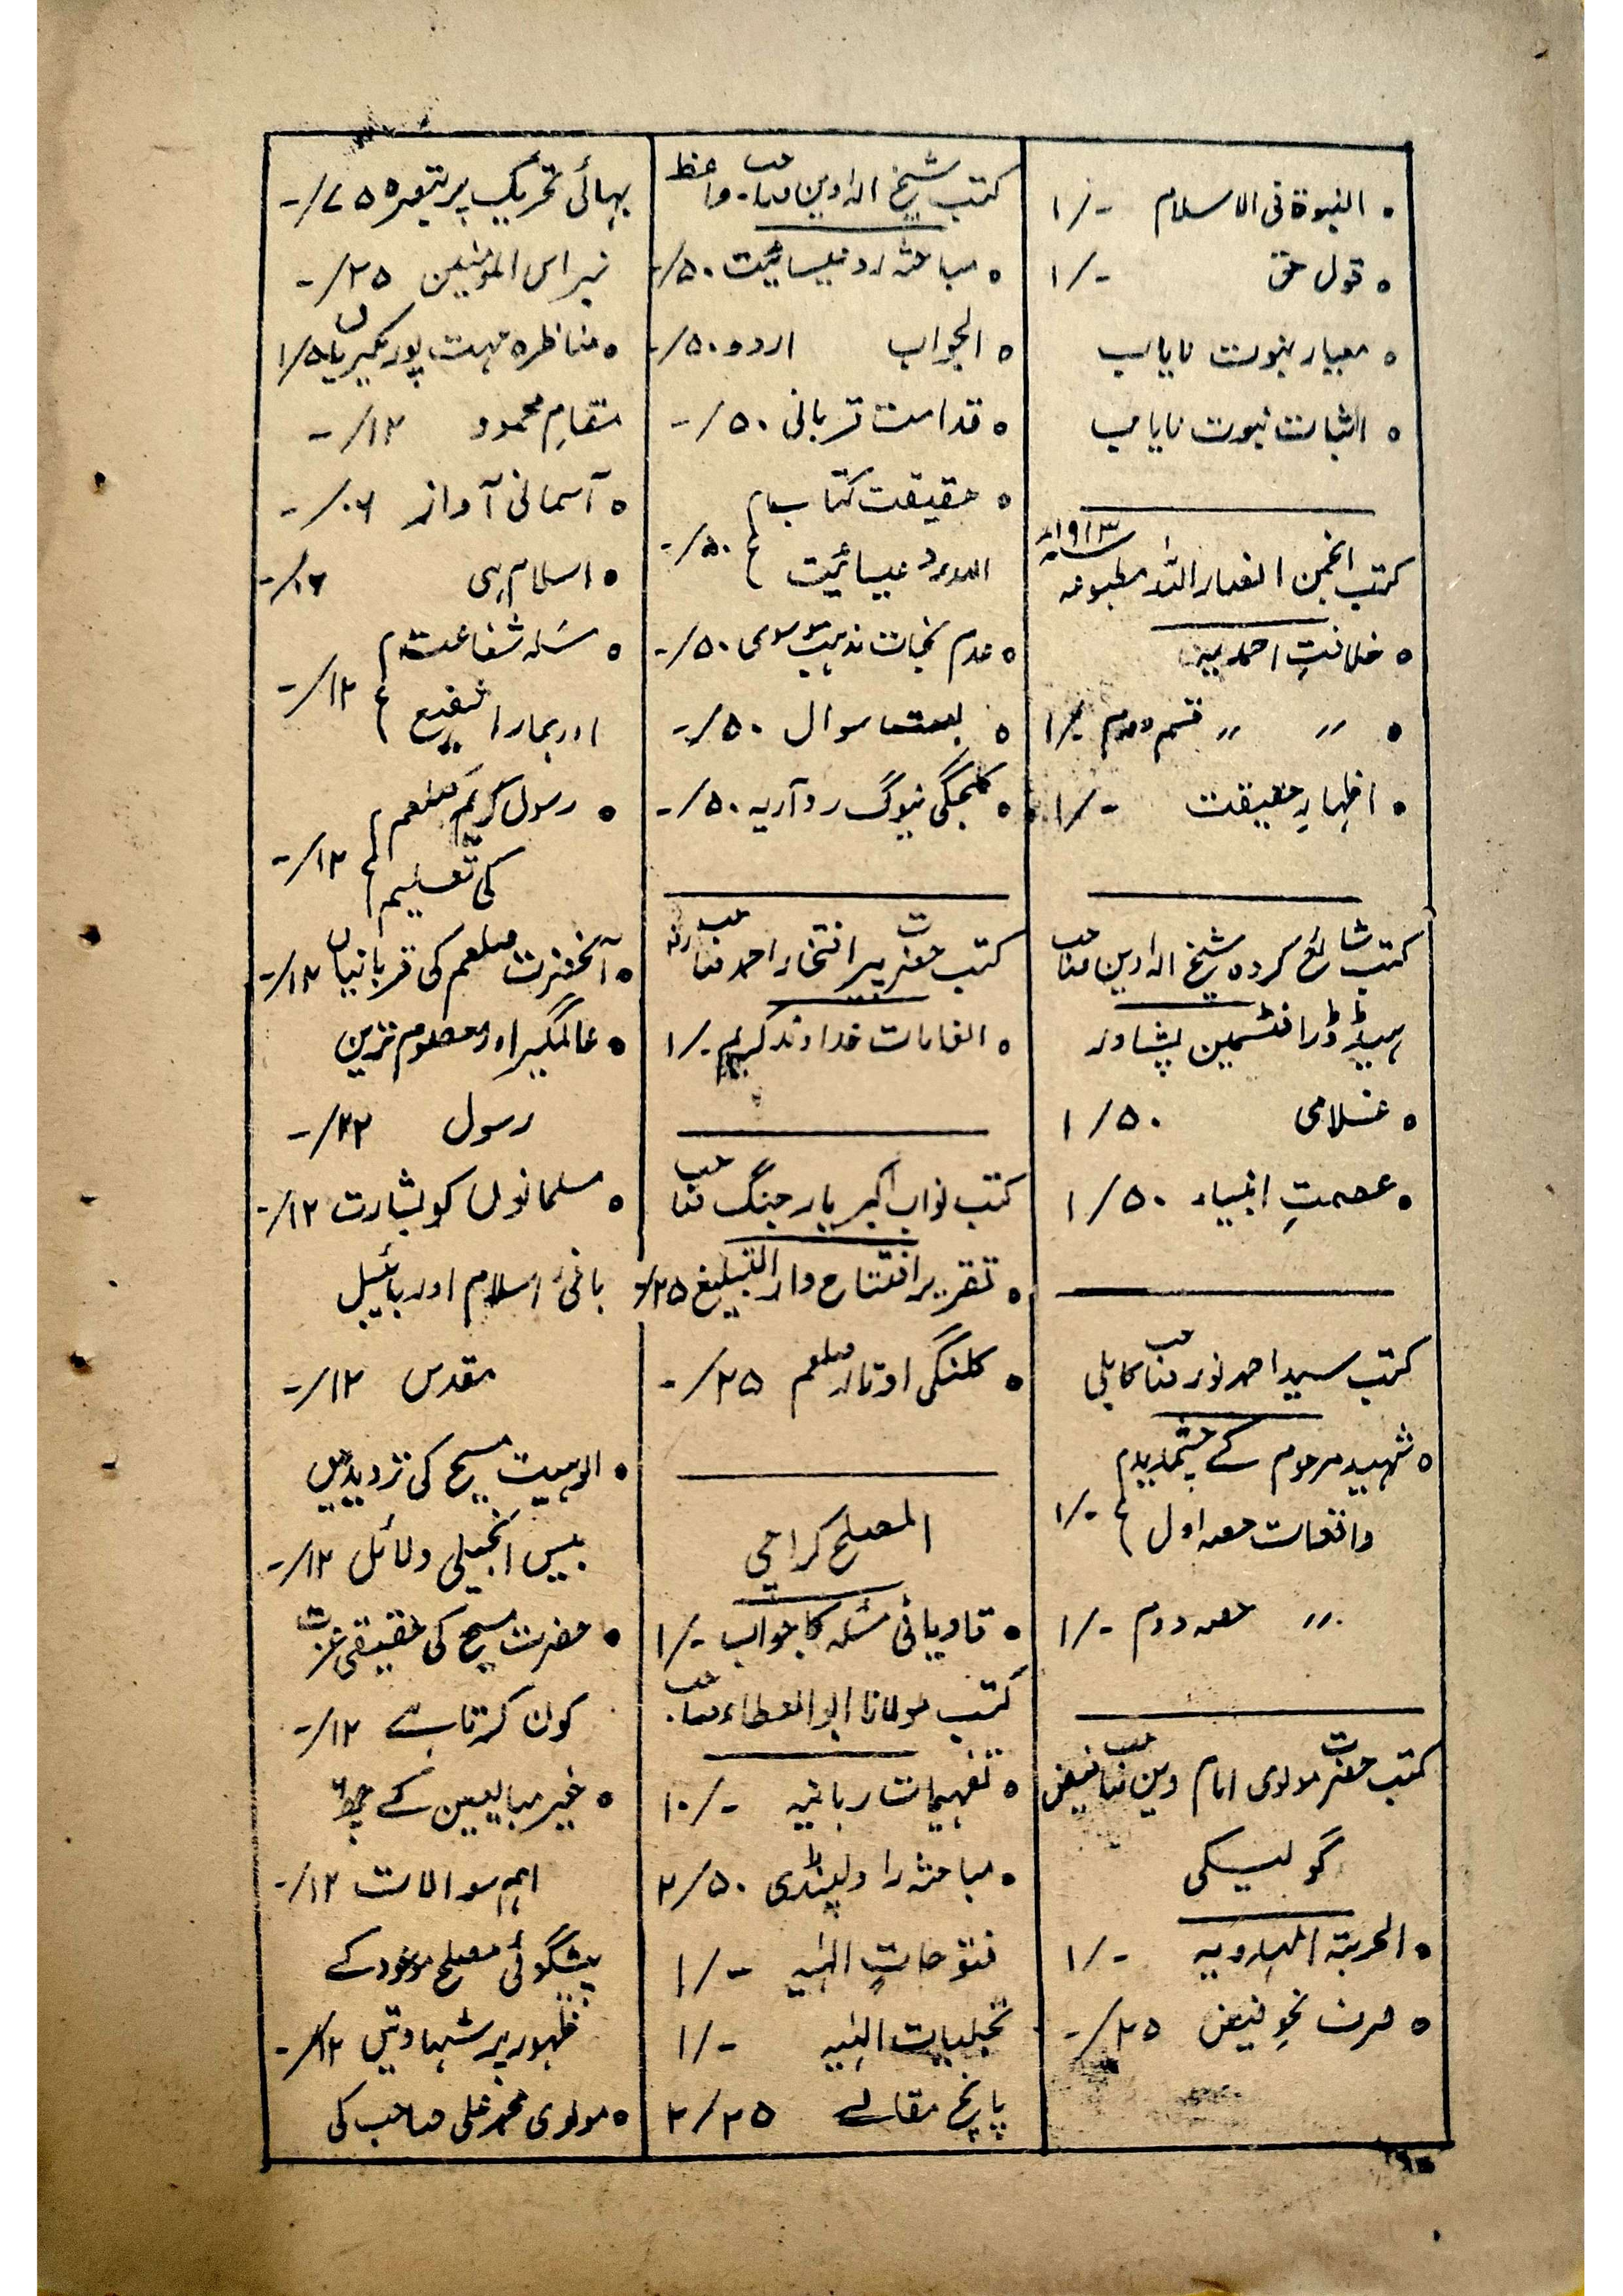 • النبوة فی الاسلام ۱/-
• قول حق ۱/-
• معیار نبوت نایاب
• اثبات نبوت نایاب
کتب انجمن انصار اللہ مطبوعہ ۱۹۱۳ء
• خلافتِ احمدیہ
• ״ ״ قسم دوم ۱/-
• اظہارِ حقیقت ۱/-
کتب شائع کردہ شیخ الہ دین صاحب
ہیڈ ڈرافٹسمین پشاور
• غلامی ۱/۵۰
• عصمتِ انبیاء ۱/۵۰
کتب سید احمد نور صاحب کابلی
• شہید مرحوم کے چشمدید
واقعات حصہ اول ۱/-
״ حصہ دوم ۱/-
کتب حضرت مولوی امام دین صاحب فیض
گولیکی
• الحربۃ ۱/-
• صرف نحو فیض -/۲۵
کتب شیخ الہ دین صاحب۔ واعظ
• مباحثہ رد عیسائیت -/۵۰
• الجواب اردو -/۵۰
• قدامت قربانی -/۵۰
• حقیقت کتاب
عیسائیت -/۵۰
• عدم نجات مذہب موسوی -/۵۰
• بست سوال -/۵۰
• کلجگی نیوگ رد آریہ -/۵۰
کتب حضرت پیر افتخار احمد صاحب رضہ
• انعامات خداوند کریم ۱/-
کتب نواب اکبر یار جنگ صاحب
• تقریر افتتاح دار التبلیغ -/۲۵
• کلنکی اوتار صلعم -/۲۵
المصلح کراچی
• قادیانی مسئلہ کا جواب ۱/-
کتب مولانا ابوالعطاء صاحب۔
• تفہیمات ربانیہ ۱۰/-
• مباحثہ راولپنڈی ۲/۵۰
فتوحاتِ الٰہیہ ۱/-
تجلیات الٰہیہ ۱/-
پانچ مقالے ۲/۲۵
بہائی تحریک پر تبصرہ -/۷۵
نبراس المومنین -/۲۵
• مناظرہ مہت پور
مقامِ محمود -/۱۲
• آسمانی آواز -/۰۶
• اسلام ہی -/۱۲
• مسئلہ شفاعت
اور ہمارا شفیع -/۱۲
• رسول کریم صلعم
کی تعلیم -/۱۲
• آنحضرت صلعم کی قربانیاں -/۱۲
• عالمگیر اور معصوم ترین
رسول -/۲۲
• مسلمانوں کو بشارت -/۱۲
بانیٔ اسلام اور بائیبل
مقدس -/۱۲
• الوہیت مسیح کی تردید میں
بیس انجیلی دلائل -/۱۲
• حضرت مسیح کی حقیقی عزت
کون کرتا ہے -/۱۲
• غیر مبایعین کے چھ
اہم سوالات -/۱۲
پیشگوئی مصلح موعود کے
ظہور پر شہادتیں -/۱۲
• مولوی محمد علی صاحب کی